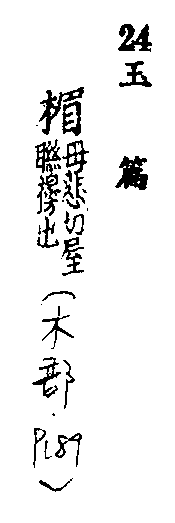 24
玉 篇
楣 毋悲切屋
聯出
(木部·P189)